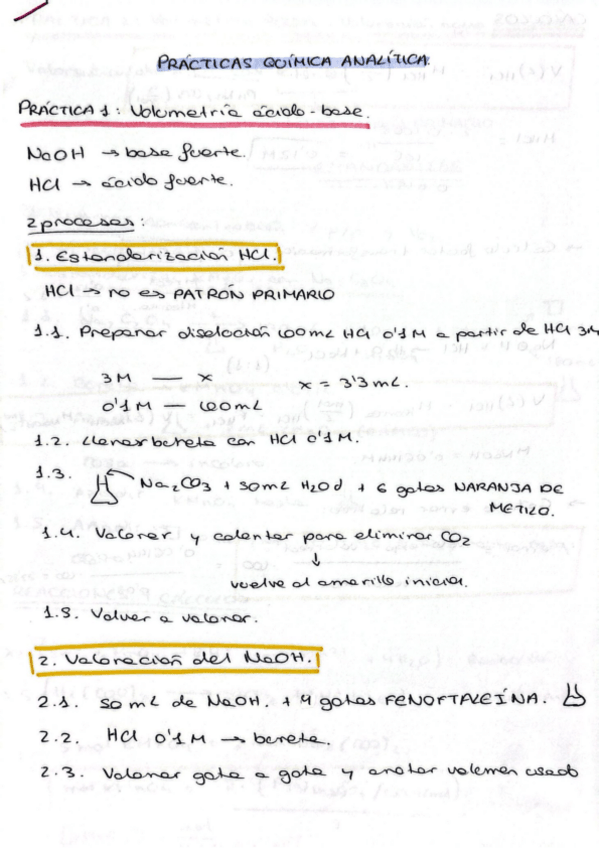 PRÁCTICAS QUÍMICA ANALÍTICA.
PRÁCTICA 1: Volumetría ácido-base.
NaOH → base fuerte.
HCl → ácido fuerte.
2 procesos:
1. Estandarización HCl.
HCl → no es PATRÓN PRIMARIO
1.1. Preparar disolución 100mL HCl 0'1M a partir de HCl 3M
3M — x
x = 3'3mL.
0'1M — 100mL
1.2. Llenar bureta con HCl 0'1M.
1.3. Na₂CO₃ + 50mL H₂O d + 6 gotas NARANJA DE
METILO.
1.4. Valorar y calentar para eliminar CO₂
↓
vuelve al amarillo inicial.
1.5. Volver a valorar.
2. Valoración del NaOH.
2.1. 50mL de NaOH. + 4 gotas FENOFTALEÍNA.
2.2. HCl 0'1M → bureta.
2.3. Valorar gota a gota y anotar volumen usado